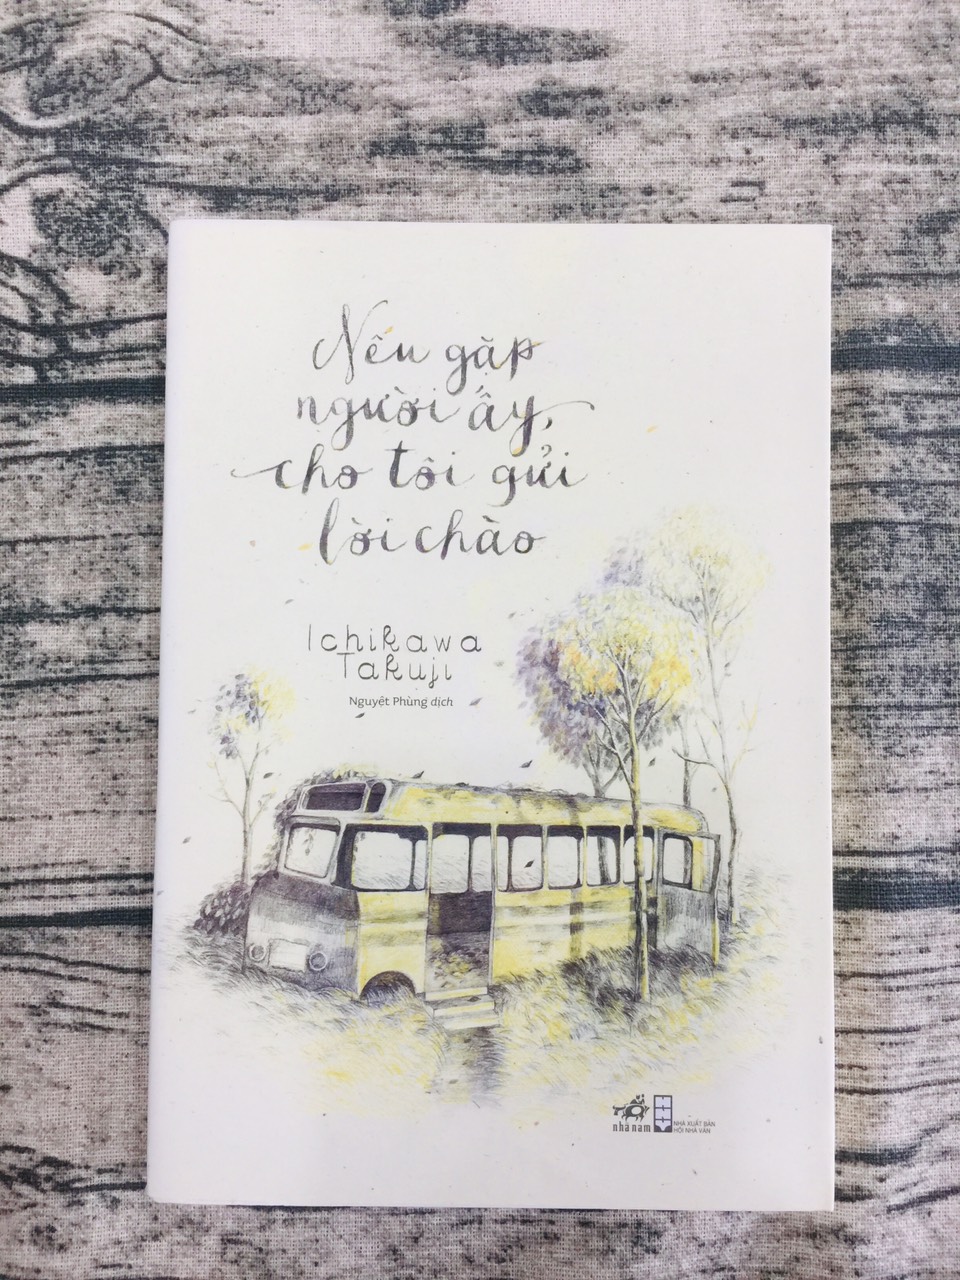 Nếu gặp
người ấy,
cho tôi gửi
lời chào
Ichikawa
Takuji
Nguyệt Phùng dịch
nhã nam
NHÀ XUẤT BẢN
HỘI NHÀ VĂN